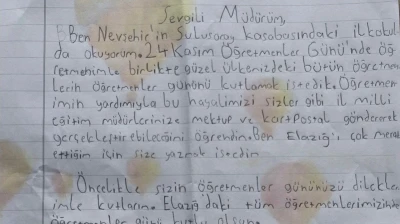 Sevgili Müdürüm,
Ben Nevşehir'in Sulusaray kasabasındaki ilkokul
da okuyorum. 24 Kasım Öğretmenler Günü'nde öğ
retmenimle birlikte güzel ülkemizdeki bütün öğretmen
lerin öğretmenler gününü kutlamak istedik. Öğretmen
imin yardımıyla bu hayalimizi sizler gibi il milli
eğitim müdürlerinize mektup ve kartpostal göndererek
gerçekleştirebileceğimi öğrendim. Ben Elazığ'ı çok merak
ettiğim için size yazmak istedim
Öncelikle sizin öğretmenler gününüzü dilekle
imle kutlarım. Elazığ'daki tüm öğretmenlerimizinde
öğretmenler günü kutlu olsun.